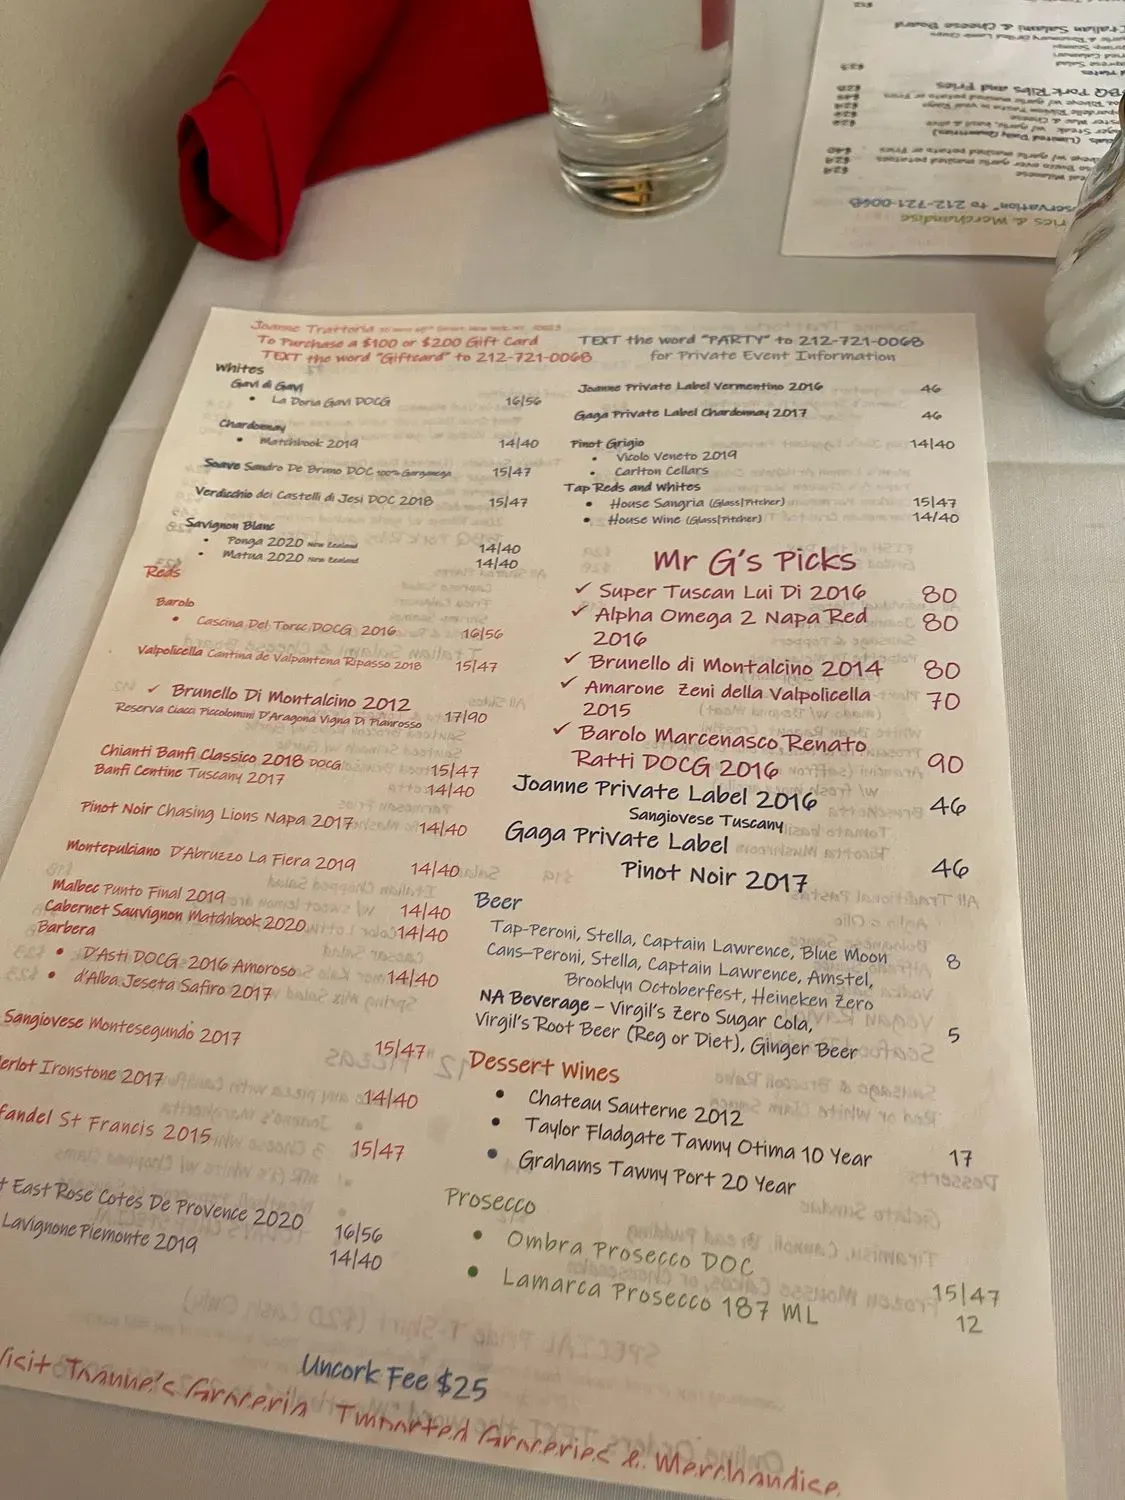 Joanne Trattoria
To Purchase a $100 or $200 Gift Card
TEXT the word "Giftcard" to 212-721-0068
TEXT the word "PARTY" to 212-721-0068
for Private Event Information
Whites
Gavi di Gavi
• La Doria Gavi DOCG 16|56
Chardonnay
• Matchbook 2019 14|40
Soave Sandro De Bruno DOC 100% Garganega 15|47
Verdicchio dei Castelli di Jesi DOC 2018 15|47
Savignon Blanc
• Ponga 2020 New Zealand 14|40
• Matua 2020 New Zealand 14|40
Reds
Barolo
• Cascina Del Torcc DOCG 2016 16|56
Valpolicella Cantina de Valpantena Ripasso 2018 15|47
✓ Brunello Di Montalcino 2012
Reserva Ciacci Piccolomini D'Aragona Vigna Di Pianrosso 17|90
Chianti Banfi Classico 2018 DOCG 15|47
Banfi Centine Tuscany 2017 14|40
Pinot Noir Chasing Lions Napa 2017 14|40
Montepulciano D'Abruzzo La Fiera 2019 14|40
Malbec Punto Final 2019 14|40
Cabernet Sauvignon Matchbook 2020 14|40
Barbera
• D'Asti DOCG 2016 Amoroso 14|40
• d'Alba Jeseta Safiro 2017
Sangiovese Montesegundo 2017 15|47
erlot Ironstone 2017 14|40
fandel St Francis 2015 15|47
t East Rose Cotes De Provence 2020 16|56
Lavignone Piemonte 2019 14|40
Joanne Private Label Vermentino 2016 46
Gaga Private Label Chardonnay 2017 46
Pinot Grigio 14|40
• Vicolo Veneto 2019
• Carlton Cellars
Tap Reds and Whites
• House Sangria (Glass|Pitcher) 15|47
• House Wine (Glass|Pitcher) 14|40
Mr G's Picks
✓ Super Tuscan Lui Di 2016 80
✓ Alpha Omega 2 Napa Red 80
2016
✓ Brunello di Montalcino 2014 80
✓ Amarone Zeni della Valpolicella 70
2015
✓ Barolo Marcenasco Renato
Ratti DOCG 2016 90
Joanne Private Label 2016 46
Sangiovese Tuscany
Gaga Private Label
Pinot Noir 2017 46
Beer
Tap-Peroni, Stella, Captain Lawrence, Blue Moon
Cans-Peroni, Stella, Captain Lawrence, Amstel, 8
Brooklyn Octoberfest, Heineken Zero
NA Beverage – Virgil's Zero Sugar Cola,
Virgil's Root Beer (Reg or Diet), Ginger Beer 5
Dessert Wines
• Chateau Sauterne 2012
• Taylor Fladgate Tawny Otima 10 Year 17
• Grahams Tawny Port 20 Year
Prosecco
• Ombra Prosecco DOC 15|47
• Lamarca Prosecco 187 ML 12
Uncork Fee $25
Visit Joanne's Groceria Imported Groceries & Merchandise
Italian Salami & Cheese Board
BQ Pork Ribs and Fries
servation" to 212-721-0068
ries & Merchandise